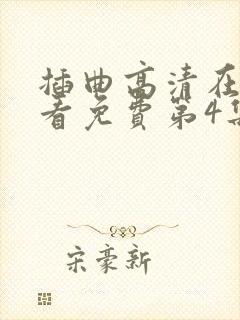 插曲高清在
看免费第4集
宋豪新